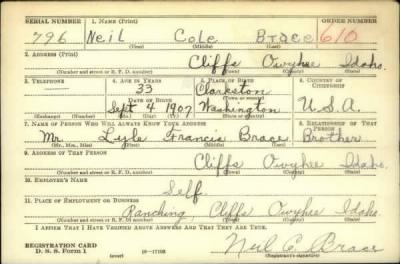 SERIAL NUMBER 1. NAME (Print) ORDER NUMBER
796 Neil Cole Brace 610
(First) (Middle) (Last)
2. ADDRESS (Print)
Cliffs Owyhee Idaho.
(Number and street or R. F. D. number) (Town) (County) (State)
3. TELEPHONE 4. AGE IN YEARS 5. PLACE OF BIRTH 6. COUNTRY OF CITIZENSHIP
33 Clarkston
DATE OF BIRTH (Town or county)
Sept 4 1907 Washington U.S.A.
(Exchange) (Number) (Mo.) (Day) (Yr.) (State or country)
7. NAME OF PERSON WHO WILL ALWAYS KNOW YOUR ADDRESS 8. RELATIONSHIP OF THAT PERSON
Mr Lyle Francis Brace Brother
(Mr., Mrs., Miss) (First) (Middle) (Last)
9. ADDRESS OF THAT PERSON
Cliffs Owyhee Idaho.
(Number and street or R. F. D. number) (Town) (County) (State)
10. EMPLOYER'S NAME
Self
11. PLACE OF EMPLOYMENT OR BUSINESS
Ranching, Cliffs Owyhee Idaho.
(Number and street or R. F. D. number) (Town) (County) (State)
I AFFIRM THAT I HAVE VERIFIED ABOVE ANSWERS AND THAT THEY ARE TRUE.
REGISTRATION CARD
D. S. S. Form 1 (over) Neil C Brace
(Registrant's signature)